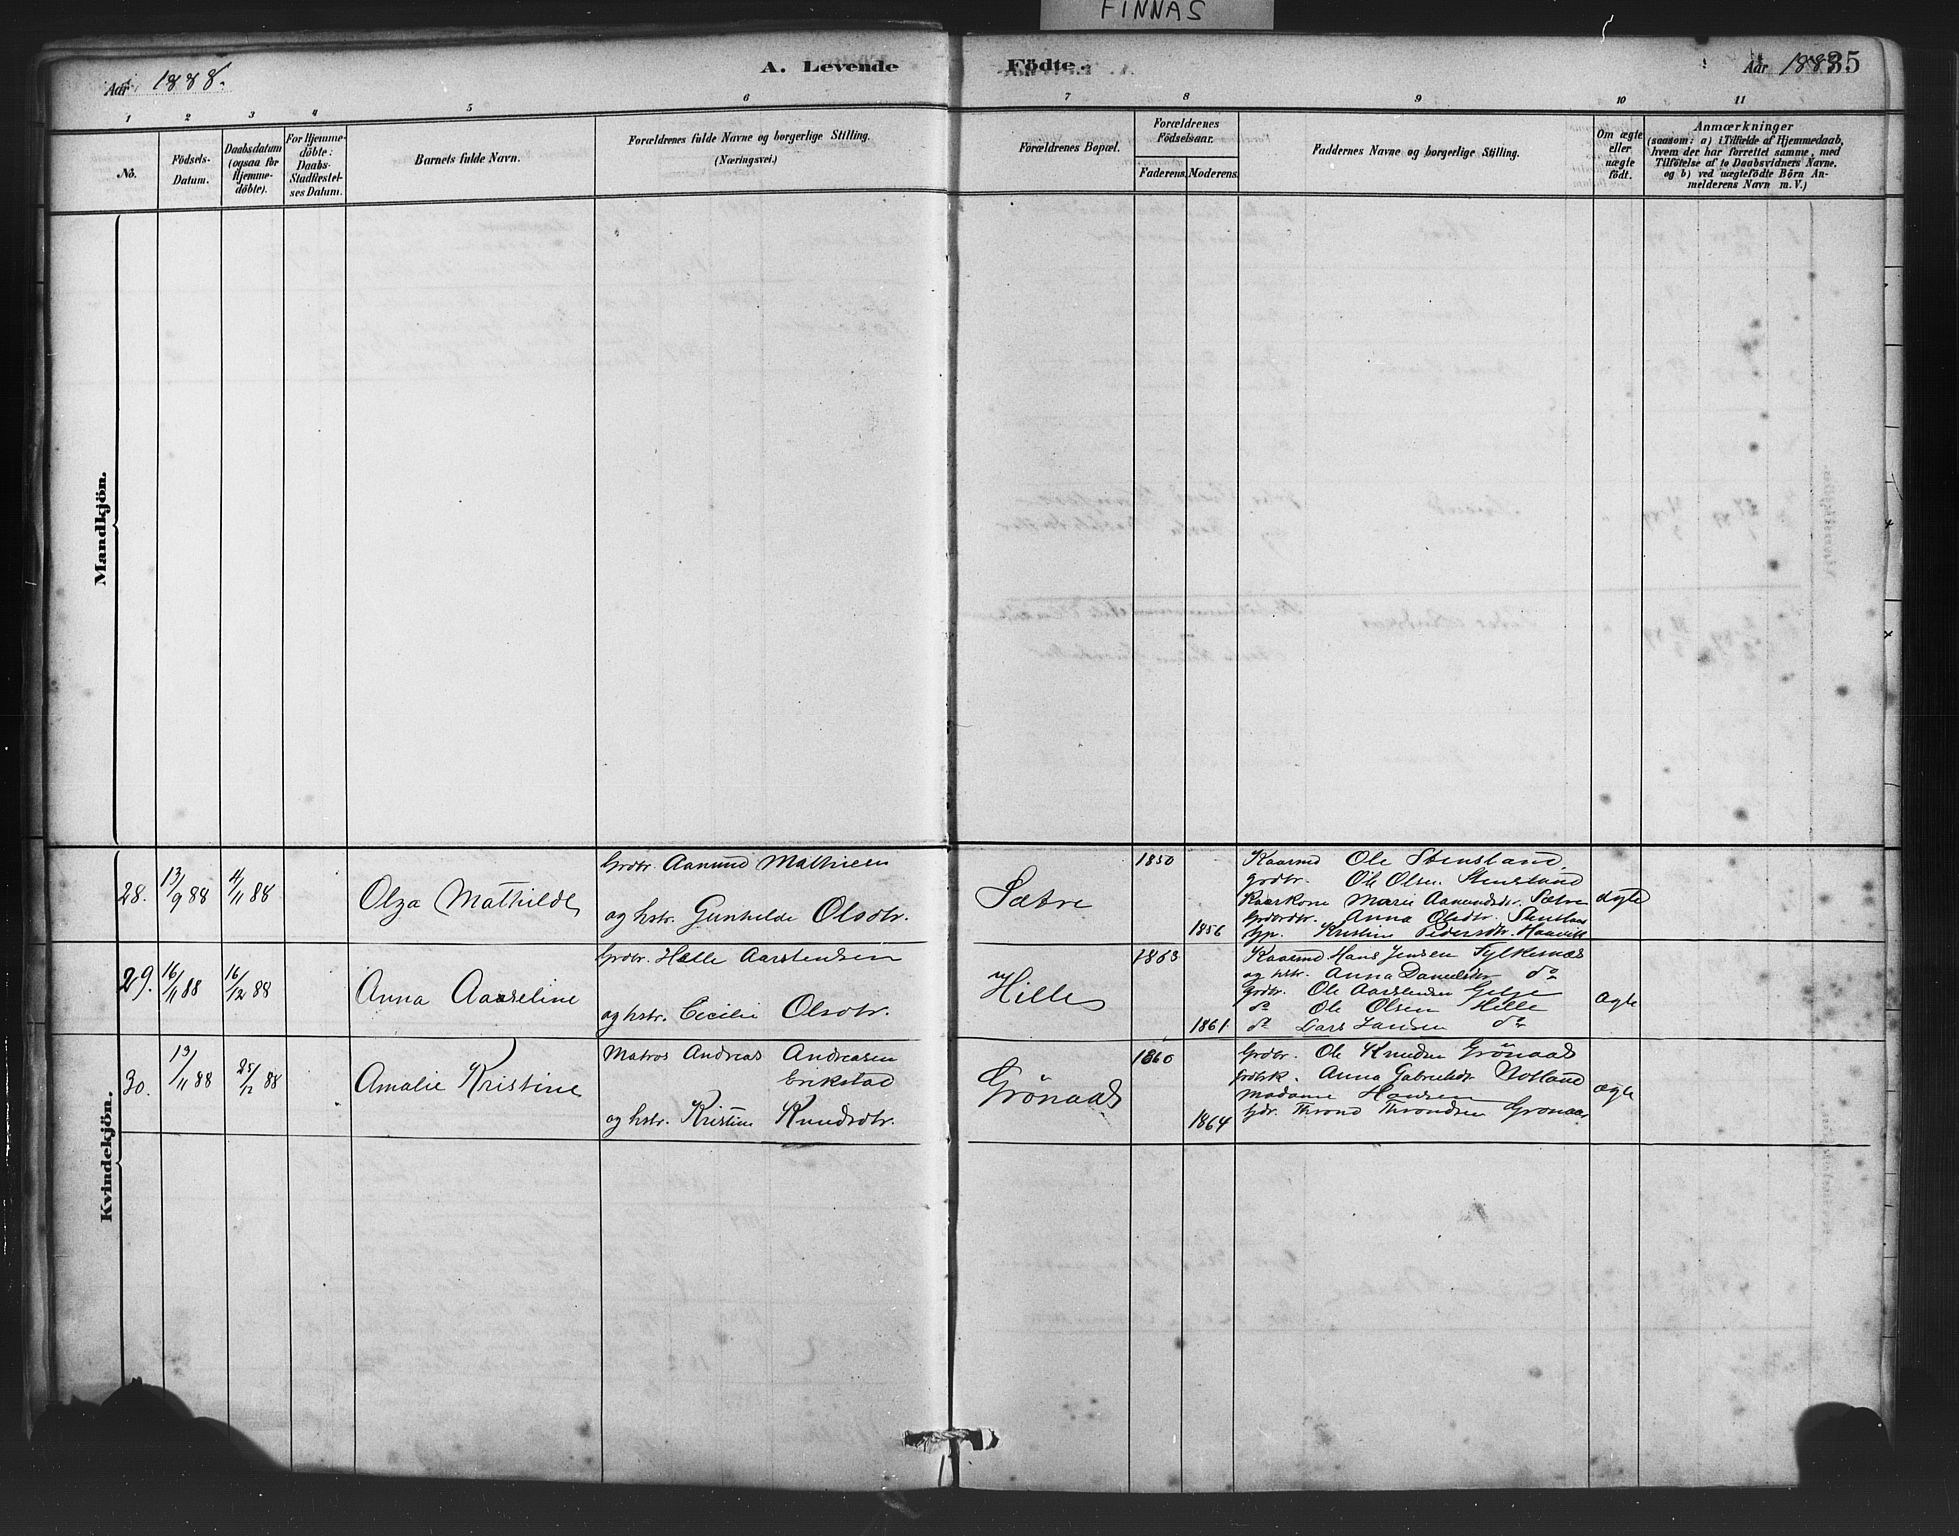 FINNAS
Aar 1888.
A. Levende
Födte.
Aar 1888.
35
1 2 3 4 5 6 7 8 9 10 11
No.
Födsels-
Datum.
Daabsdatum
(ogsaa for
Hjemme-
döbte).
For Hjemme-
döbte:
Daabs-
Stadfæstel-
ses Datum.
Barnets fulde Navn.
Forældrenes fulde Navne og borgerlige Stilling.
(Næringsvei.)
Forældrenes Bopæl.
Forældrenes
Födselsaar.
Faderens.
Moderens.
Faddernes Navne og borgerlige Stilling.
Om ægte
eller
uægte
födt.
Anmærkninger
(saasom: a) i Tilfælde af Hjemmedaab,
hvem der har forrettet samme, med
Tilföielse af to Daabsvidners Navne,
og b) ved uægtefödte Börn An-
melderens Navn m. V.)
Mandkjön.
Kvindekjön.
28. 13/9 88 4/11 88
Olga Mathilde
Grdbr. Aamund Mathiesen
og hstr. Gunhilde Olsdtr.
Sætre
1850
1856
Kaarmd Ole Stensland
grdbr. Ole Olsen Stensland
Kaarkone Marie Aamundsdtr. Sætre
Anna Olsdtr.
Kristine Pedersdtr.
ægte
29. 16/11 88 16/12 88
Anna Aaseline
Grdbr. Helle Aarstensen
og hstr. Cecilie Olsdtr.
Hille
1863
1861
Kaarmd Hans Jensen Fylkesnæs
og hstr. Anna Danielsdtr do
Grdbr. Ole Aarstensen
do Ole Olsen Hille
do Lars Larsen do
ægte
30. 13/11 88 25/12 88
Amalie Kristine
Matros Andreas Andreasen
Erikstad
og hstr. Kristine Knudsdtr.
Grönaas
1860
1864
Grdbr. Ole Knudsen Grönaas
Anna Gabrielsdtr
Madame Hansen
Thrond Throndsen Grønaas
ægte